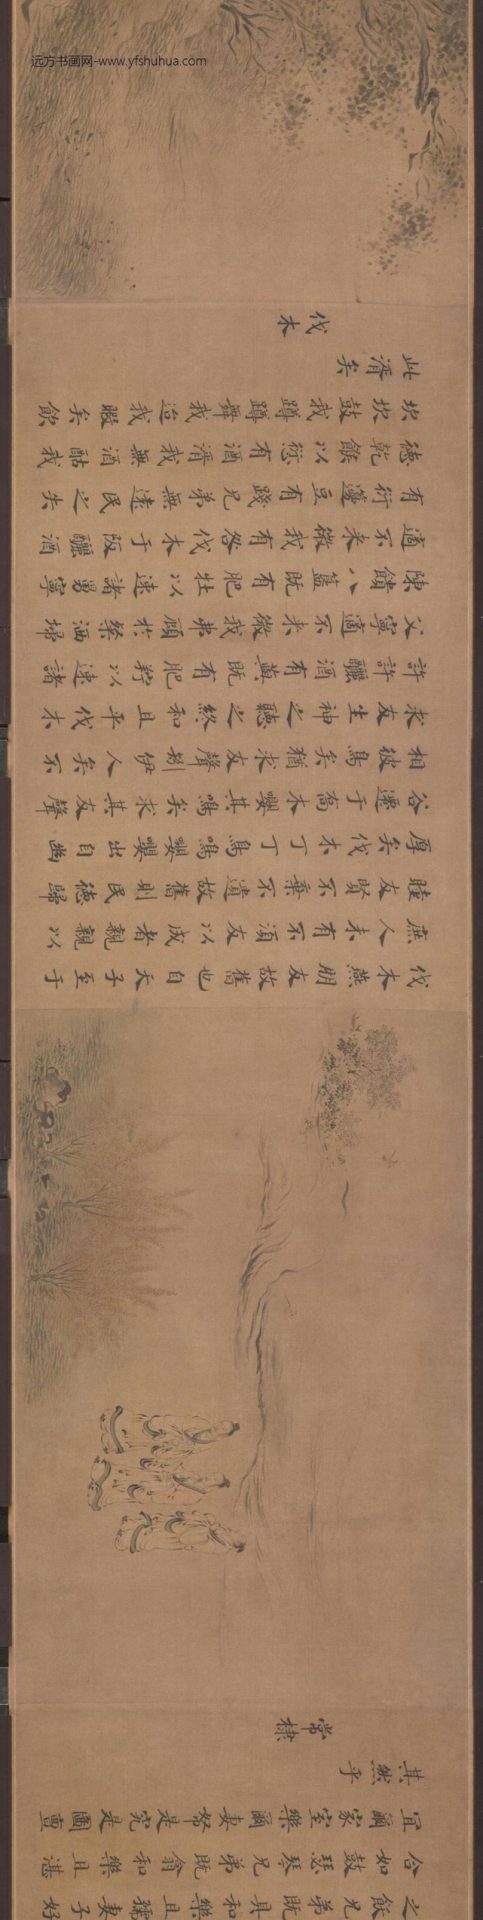 之飫兄弟既具和樂且孺妻子好
合如鼓瑟琴兄弟既翕和樂且湛
宜爾家室樂爾妻帑是究是圖亶
其然乎
常棣
伐木燕朋友故舊也自天子至于
庶人未有不須友以成者親親以
睦友賢不棄不遺故舊則民德歸
厚矣伐木丁丁鳥鳴嚶嚶出自幽
谷遷于喬木嚶其鳴矣求其友聲
相彼鳥矣猶求友聲矧伊人矣不
求友生神之聽之終和且平伐木
許許釃酒有藇既有肥羜以速諸
父寧適不來微我弗顧於粲洒埽
陳饋八簋既有肥牡以速諸舅寧
適不來微我有咎伐木于阪釃酒
有衍籩豆有踐兄弟無遠民之失
德乾餱以愆有酒湑我無酒酤我
坎坎鼓我蹲蹲舞我迨我暇矣飲
此湑矣
伐木
远方书画网-www.yfshuhua.com